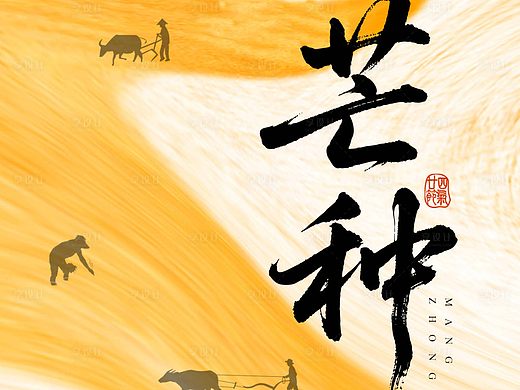 芒种
廿四节气
MANG
ZHONG